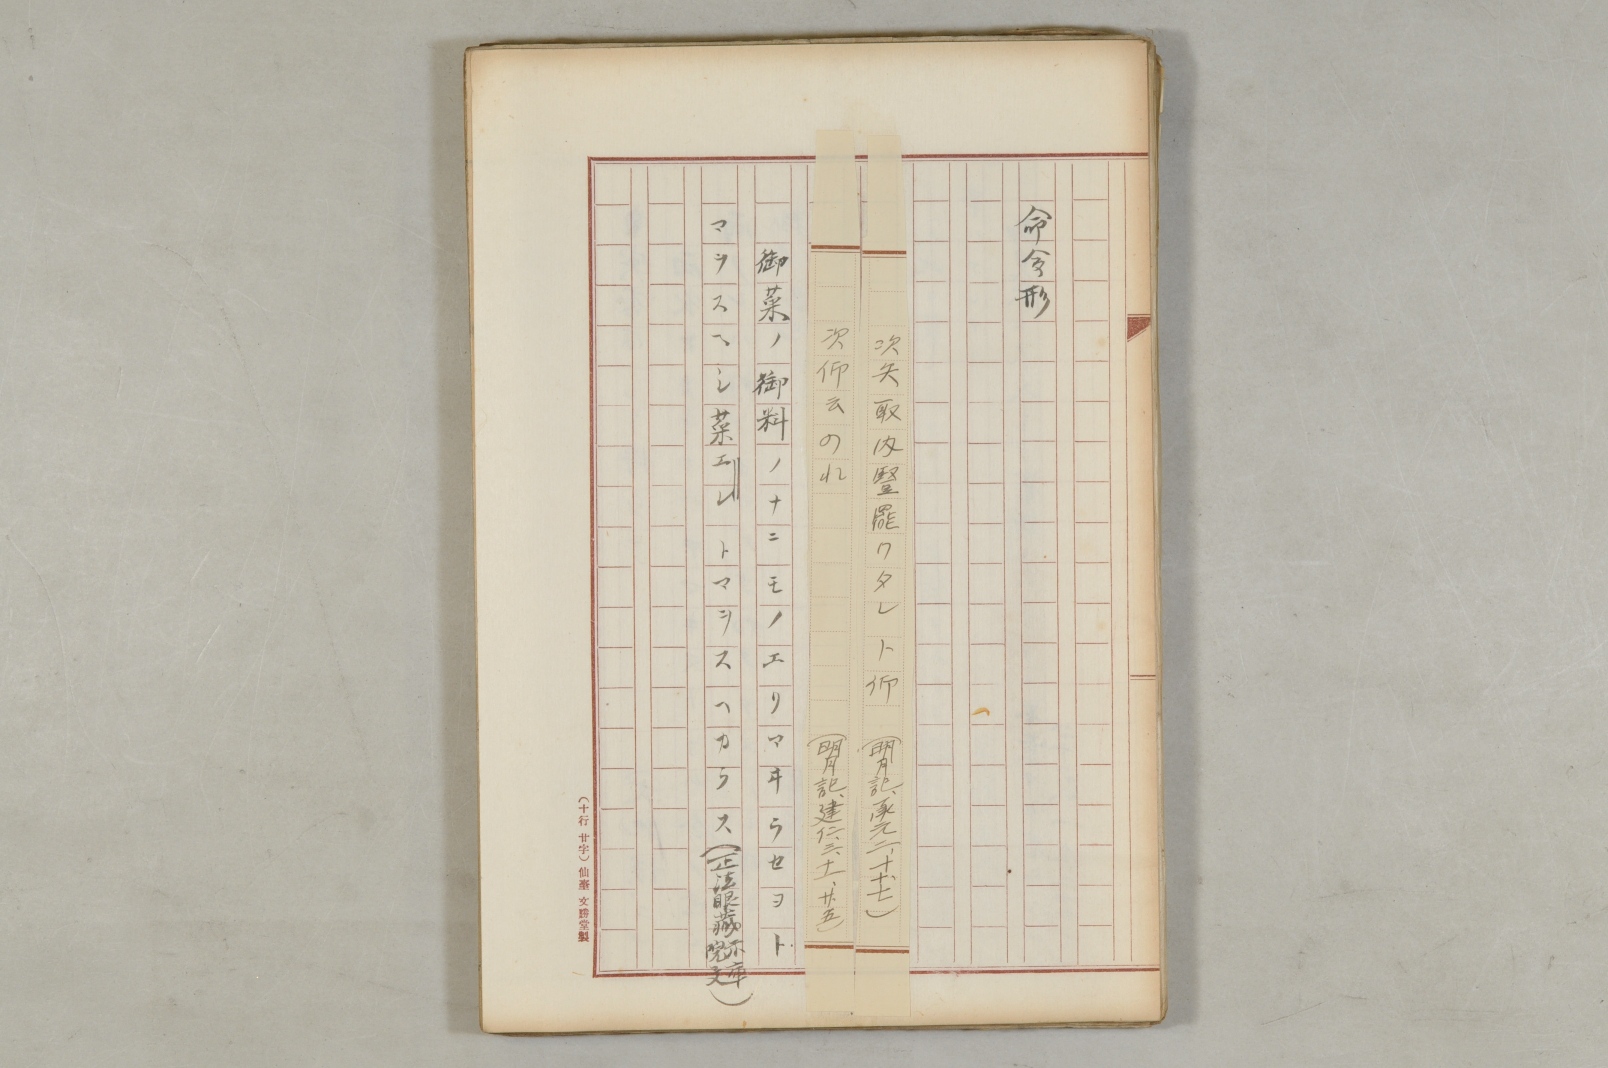 命令形
次矢取内豎罷クタレト仰 (明月記、承元二、十、十七)
次仰云のれ (明月記、建仁三、十一、廿五)
御菜ノ御料ノナニモノエリマヰラセヨト
マウスヘシ菜エレトマウスヘカラス(正法眼蔵示庫院文)
(十行 廿字) 仙臺 文勝堂製